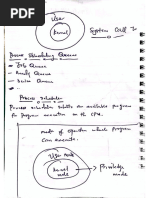 User
Kernel
System Call In
Process Scheduling Queues
- Job Queue
- Ready Queue
- Device Queue
Process Scheduler
Process scheduler selects an available program
for Program execution on the CPU.
mode of operation which program
can execute.
User mode
Kernel
mode
Privileged
mode